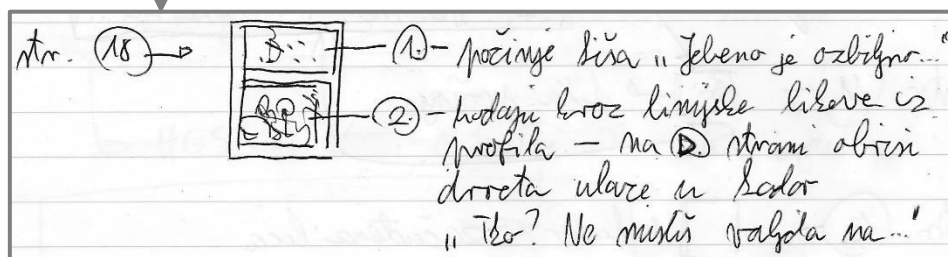 str. 18 → 1. – počinje kiša „Jebeno je ozbiljno..."
2. – hodaju kroz linijske likove iz
profila – na D. strani obrisi
drveta ulaze u kadar
„Tko? Ne misliš valjda na..."